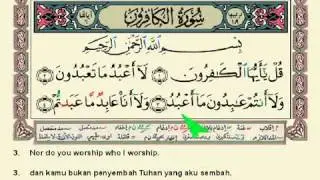 سُورَةُ الْكَافِرُونَ
بِسْمِ اللَّهِ الرَّحْمَٰنِ الرَّحِيمِ
قُلْ يَا أَيُّهَا الْكَافِرُونَ ۝١ لَا أَعْبُدُ مَا تَعْبُدُونَ ۝٢
وَلَا أَنْتُمْ عَابِدُونَ مَا أَعْبُدُ ۝٣ وَلَا أَنَا عَابِدٌ مَا عَبَدْتُمْ ۝٤
3. Nor do you worship who I worship.
3. dan kamu bukan penyembah Tuhan yang aku sembah,